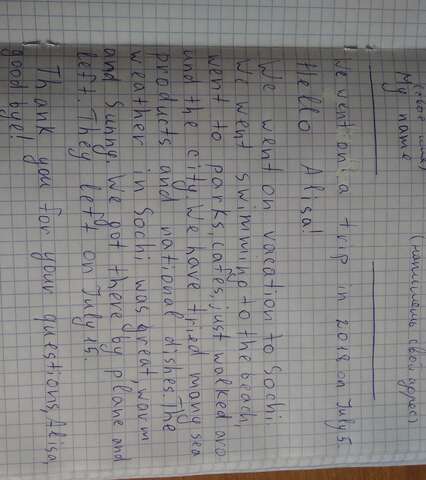 (своё имя)
My name
(напишешь свой адрес)
We went on a trip in 2018 on July 5
Hello Alisa!
We went on vacation to Sochi
We went swimming to the beach,
went to parks, cafes, just walked aro
und the city. We have tried many sea
products and national dishes. The
weather in Sochi was great, warm
and sunny. We got there by plane and
left. They left on July 15.
Thank you for your questions, Alisa,
good bye!